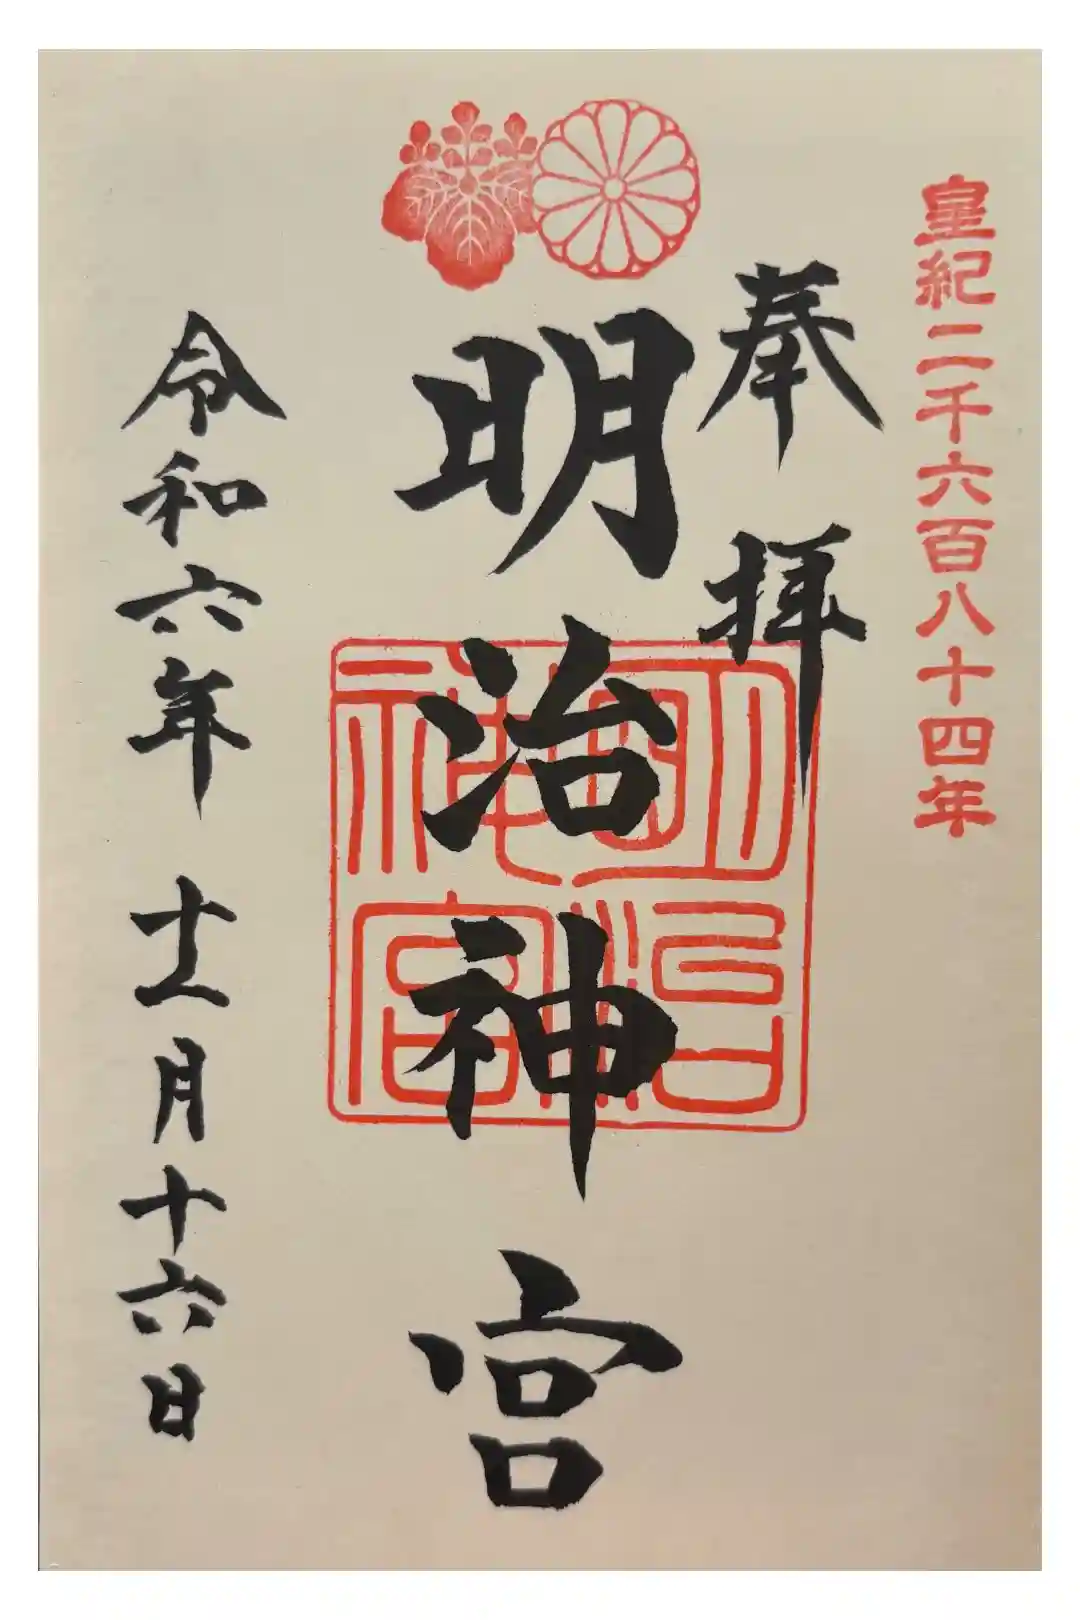 皇紀二千六百八十四年
奉拝
明治神宮
明治神宮
令和六年十二月十六日